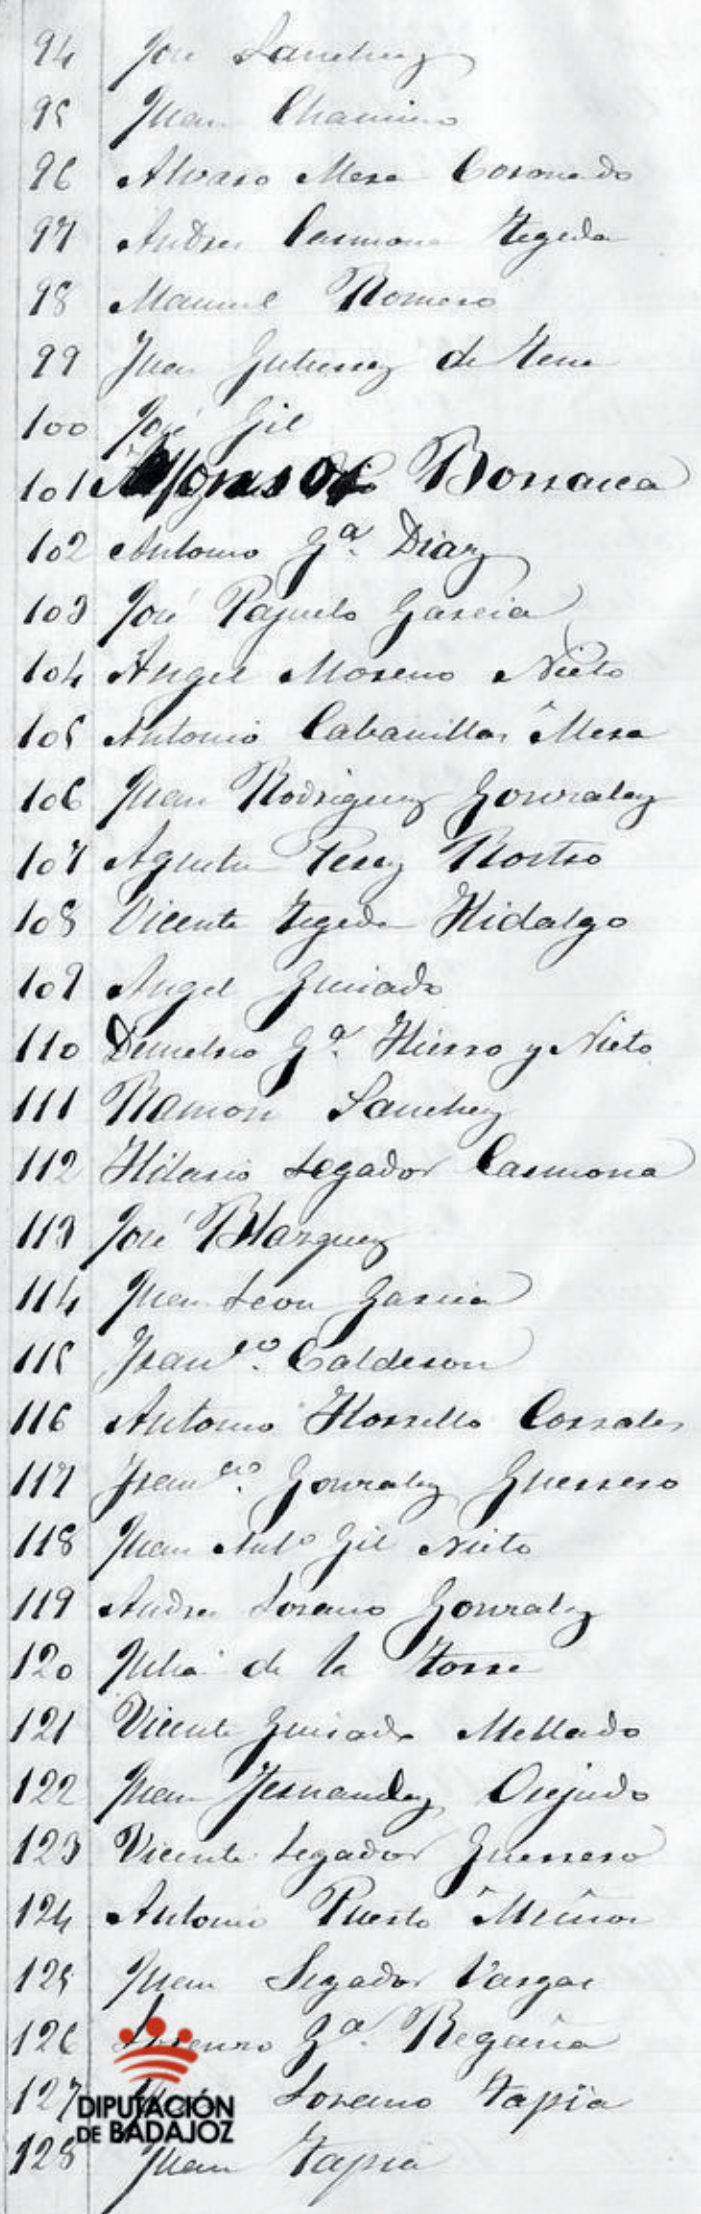 94 José Sanchez
95 Juan Chamizo
96 Alvaro Mesa Coronado
97 Andres Carmona Tegeda
98 Manuel Romero
99 Juan Gutierrez de Tena
100 José Gil
101 Alfonso Borrasca
102 Antonio Gª. Diaz
103 José Pajuelo Garcia
104 Angel Moreno Nieto
105 Antonio Cabanillas Mesa
106 Juan Rodriguez Gonzalez
107 Agustin Perez Rostro
108 Vicente Tegeda Hidalgo
109 Angel Guisado
110 Demetrio Gª. Hierro y Nieto
111 Ramon Sanchez
112 Hilario Segador Carmona
113 José Blazquez
114 Juan Leon Garcia
115 Franco. Calderon
116 Antonio Horrillo Corrales
117 Franco. Gonzalez Guerrero
118 Juan Anto Gil Nieto
119 Andres Lozano Gonzalez
120 Julia de la Torre
121 Vicente Guisado Mellado
122 Juan Fernandez Orejudo
123 Vicente Segador Guerrero
124 Antonio Puerto Muñoz
125 Juan Segador Vargas
126 Lorenzo Gª. Regaña
127 Lozano Tapia
128 Juan Tapia
DIPUTACIÓN
DE BADAJOZ